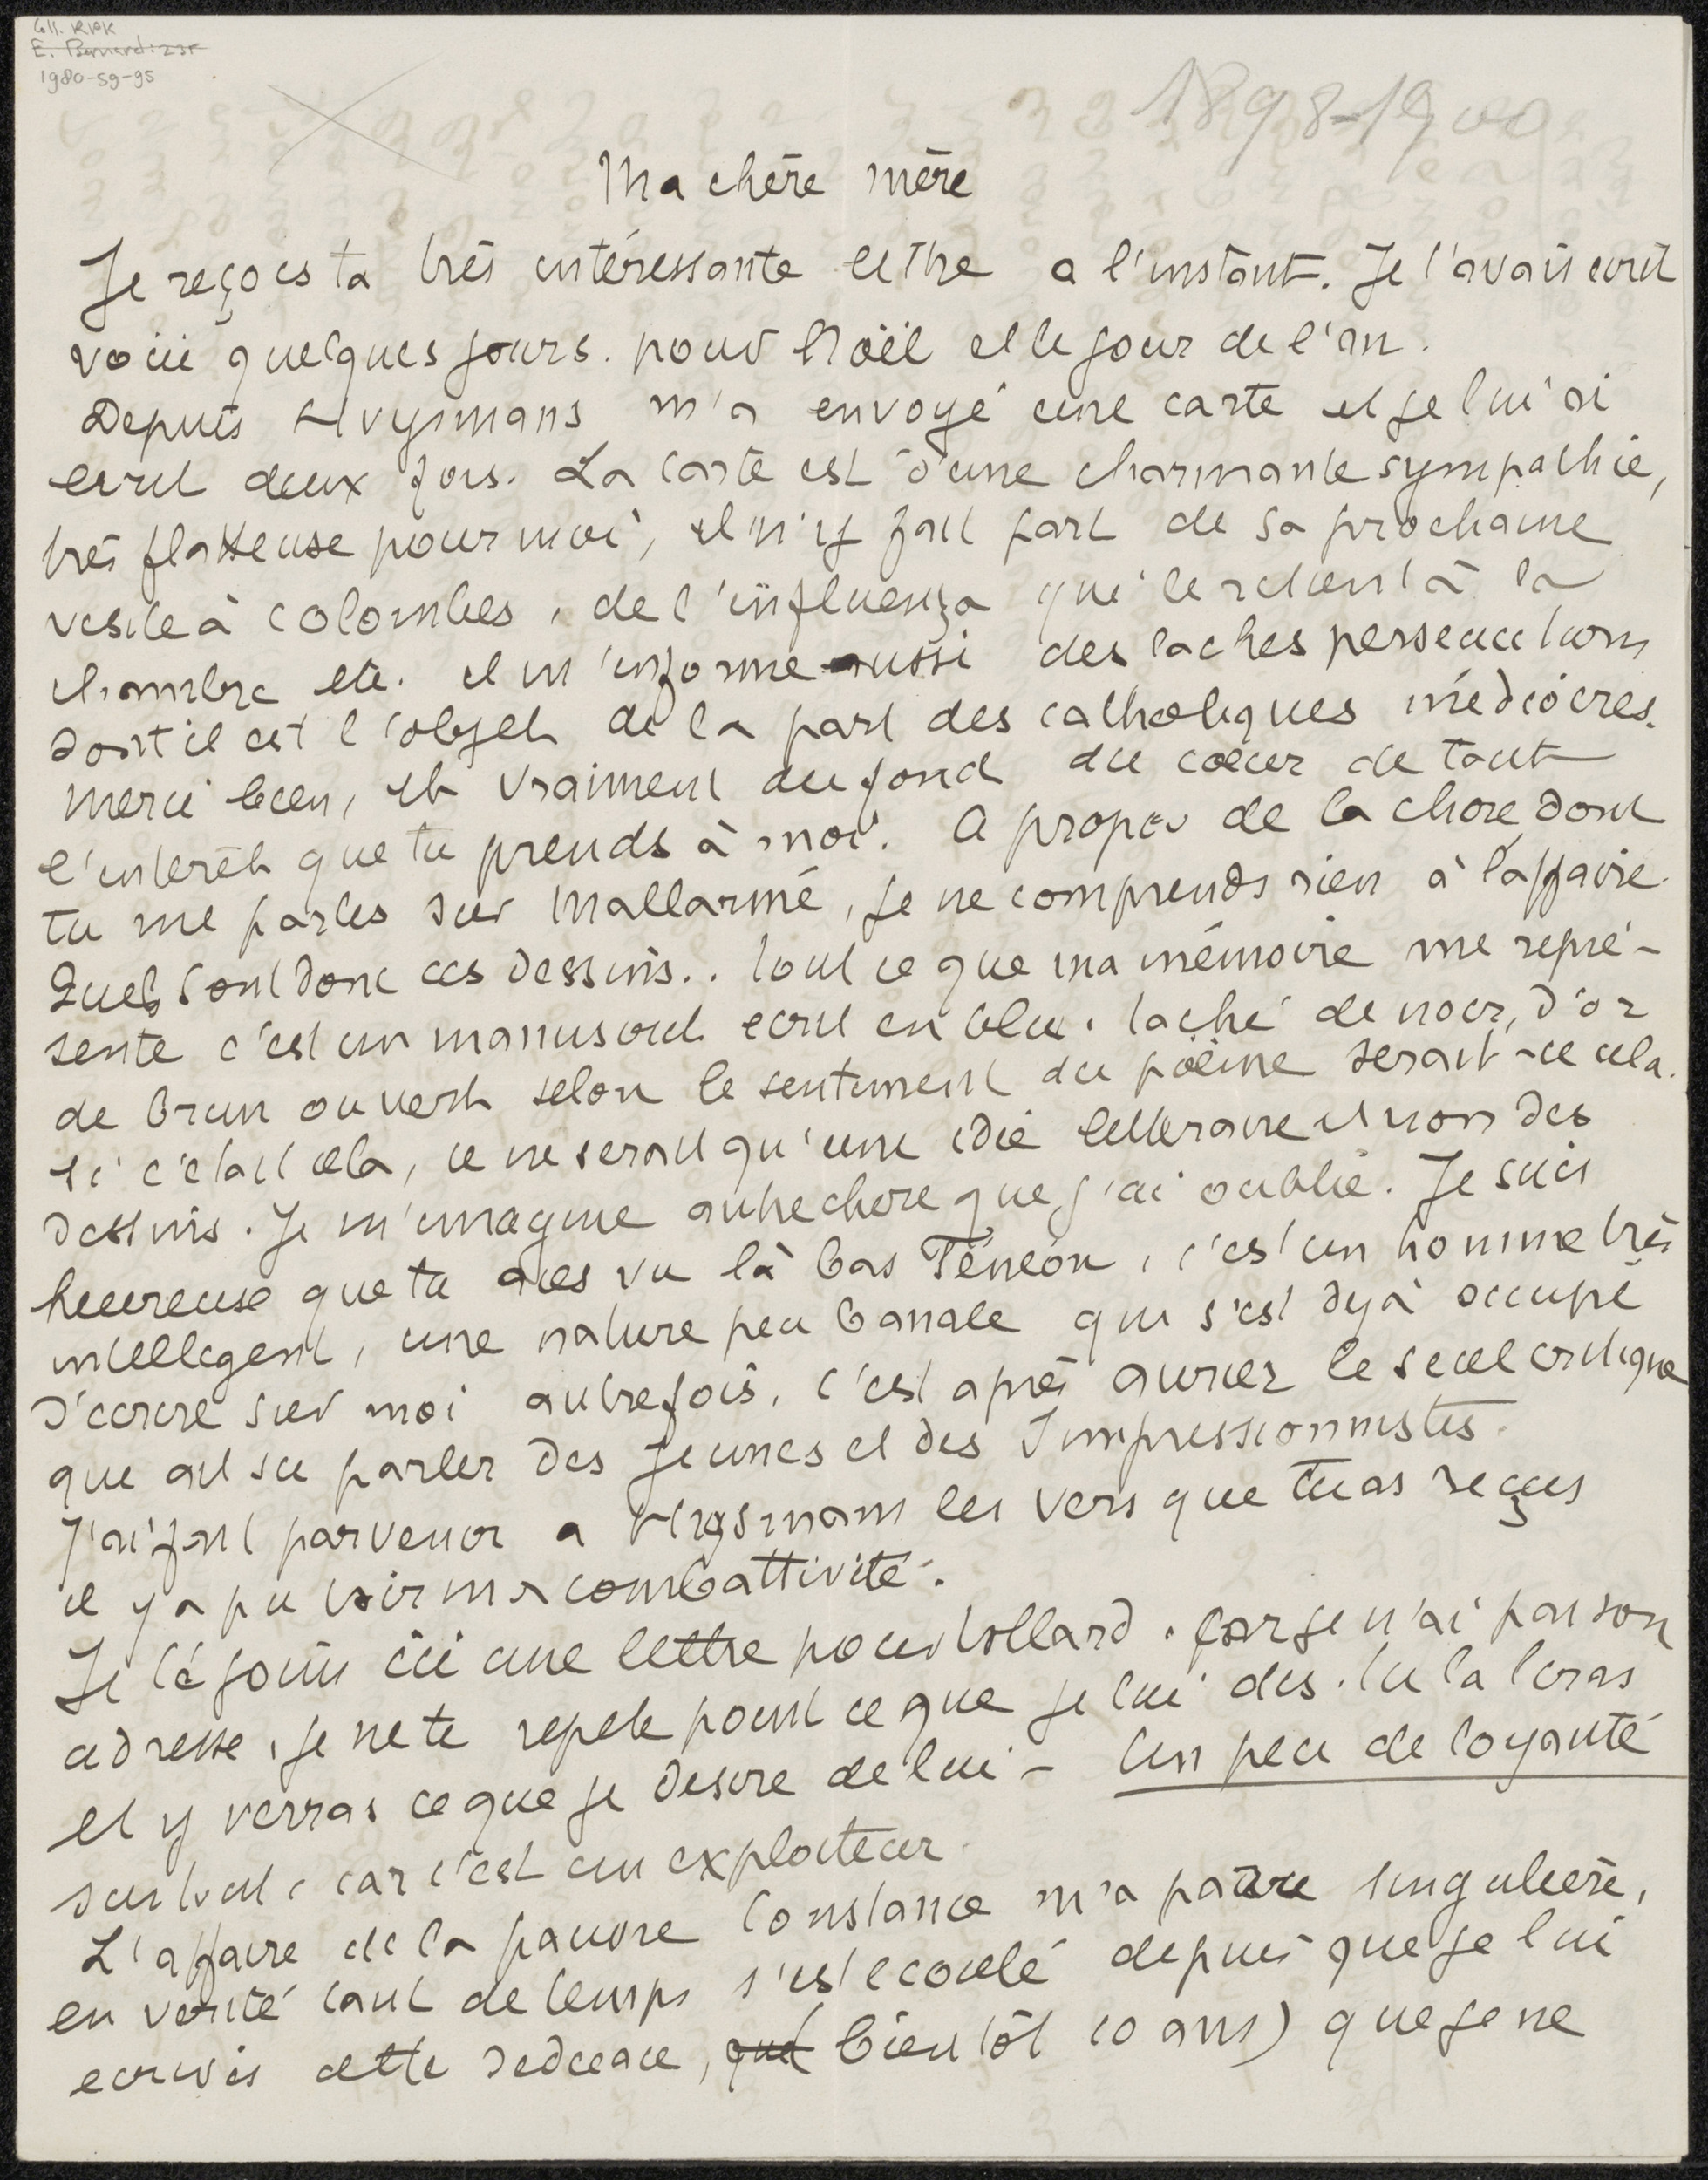 Coll. RPK
E. Bernard: 235
1980-59-95
1898-1900
Ma chère mère
Je reçois ta très intéressante lettre a l'instant. Je t'avais ecrit
voici quelques jours. pour Noël et le jour de l'an.
Depuis Huysmans m'a envoyé une carte et je lui ai
ecrit deux fois. La carte est d'une charmante sympathie,
très flatteuse pour moi, il m'y fait part de sa prochaine
visite à Colombes, de l'influenza qui le retient à la
chambre etc. il m'informe aussi des laches persecutions
dont il est l'objet de la part des catholiques médiocres.
Merci bien, et vraiment du fond du cœur de tout
l'interêt que tu prends à moi. A propos de la chose dont
tu me parles sur Mallarmé, je ne comprends rien à l'affaire.
Quels sont donc ces dessins.. tout ce que ma mémoire me repré-
sente c'est un manuscrit ecrit en bleu. taché de noir, d'or
de brun ou vert selon le sentiment du poème serait-ce cela.
si c'était cela, ce ne serait qu'une idée litteraire et non des
dessins. Je m'imagine autre chose que j'ai oublié. Je suis
heureuse que tu aies vu là bas Fénéon, c'est un homme très
intelligent, une nature peu banale qui s'est déjà occupé
d'ecrire sur moi autrefois. c'est après Aurier le seul critique
que ait su parler des jeunes et des Impressionnistes.
J'ai fait parvenir a Huysmans les vers que tu as reçus
il y a pu voir ma combattivité.
Je te joins ici une lettre pour Vollard. car je n'ai pas son
adresse, je ne te repete point ce que je lui dis. tu la liras
et y verras ce que je desire de lui – Un peu de loyauté
surtout, car c'est un exploiteur.
L'affaire de la pauvre Constance m'a parue singulière,
en verité tant de temps s'est ecoulé depuis que je lui
ecrivis cette dedicace, que bientôt 10 ans) que je ne